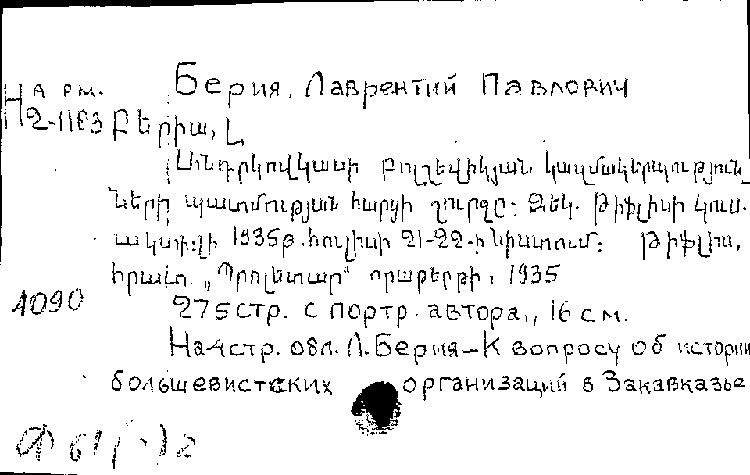 Берия, Лаврентий Павлович
На рм.
2-1183 Բերիա, Լ
Անդրկովկասի բոլշևիկյան կազմակերպություն
ների պատմության հարցի շուրջը: Զեկ. Թիֆլիսի կուս.
ակտիվի 1935թ. հուլիսի 21-22-ի նիստում: Թիֆլիս,
հրատ. „Պրոլետար" օրաթերթի, 1935
1090 275 стр. с портр. автора,, 16 см.
На 4 стр. обл. Л. Берия – К вопросу об истории
большевистских организаций в Закавказье
Ф 61